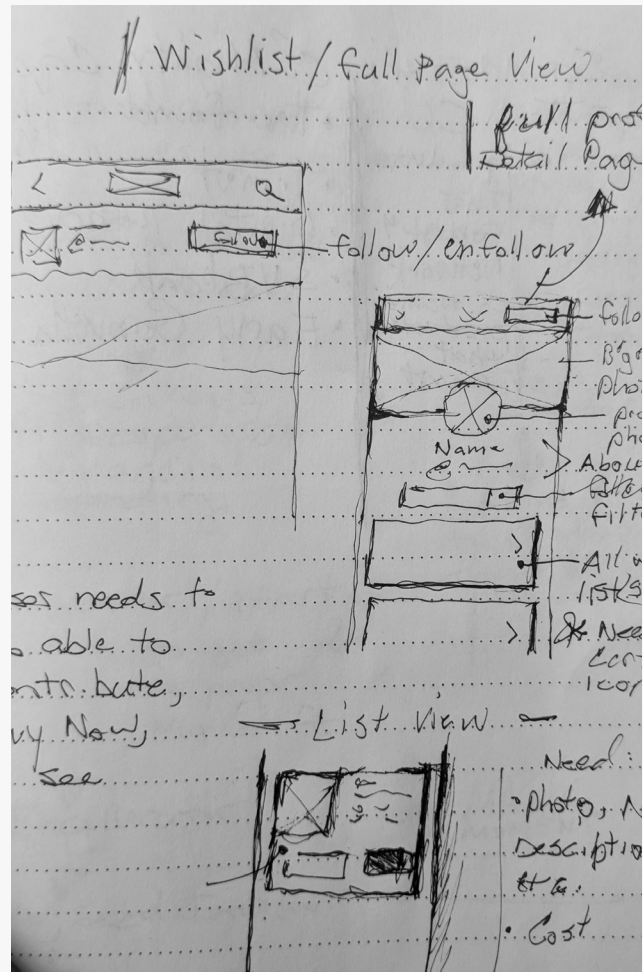 Wishlist / full page View
full prof
Detail Pag
follow
follow/enfollow
follo
Bg
pho
pro
pho
Name
@
Abou
filt
All w
lists
* Nee
Con
Icon
ser needs to
able to
ontribute,
uy Now,
see
List View
Need:
• Photo, N
Descriptio
etc.
• Cost